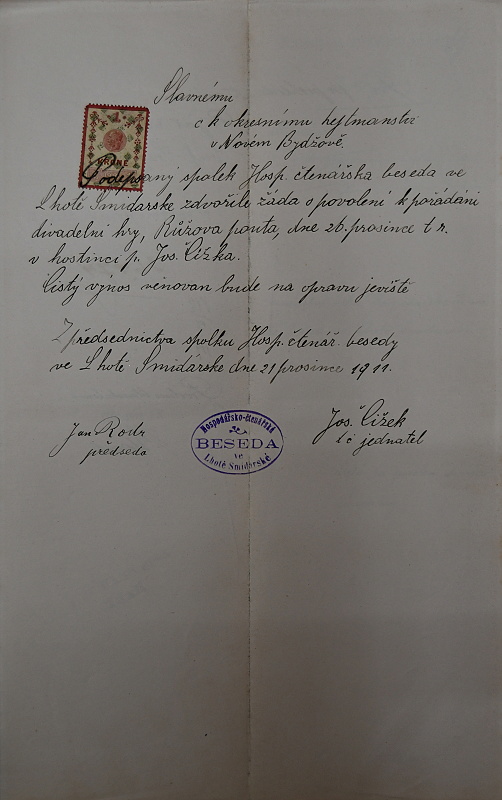 Slavnému
c k okresnímu hejtmanství
v Novém Bydžově.
1
KRONE
Podepsaný spolek Hosp. čtenářska beseda ve
Lhotě Smidarske zdvořile žáda o povolení k pořádání
divadelní hry, Růžova pouta, dne 26. prosince t r.
v hostinci p. Jos. Čížka.
Čistý výnos věnovan bude na opravu jeviště
Z předsednictva spolku Hosp. čtenář. besedy
ve Lhotě Smidárske dne 21 prosince 1911.
Jos. Čížek
t č jednatel
Jan
předseda
Hospodářsko-čtenářská
BESEDA
ve
Lhotě Smidárské